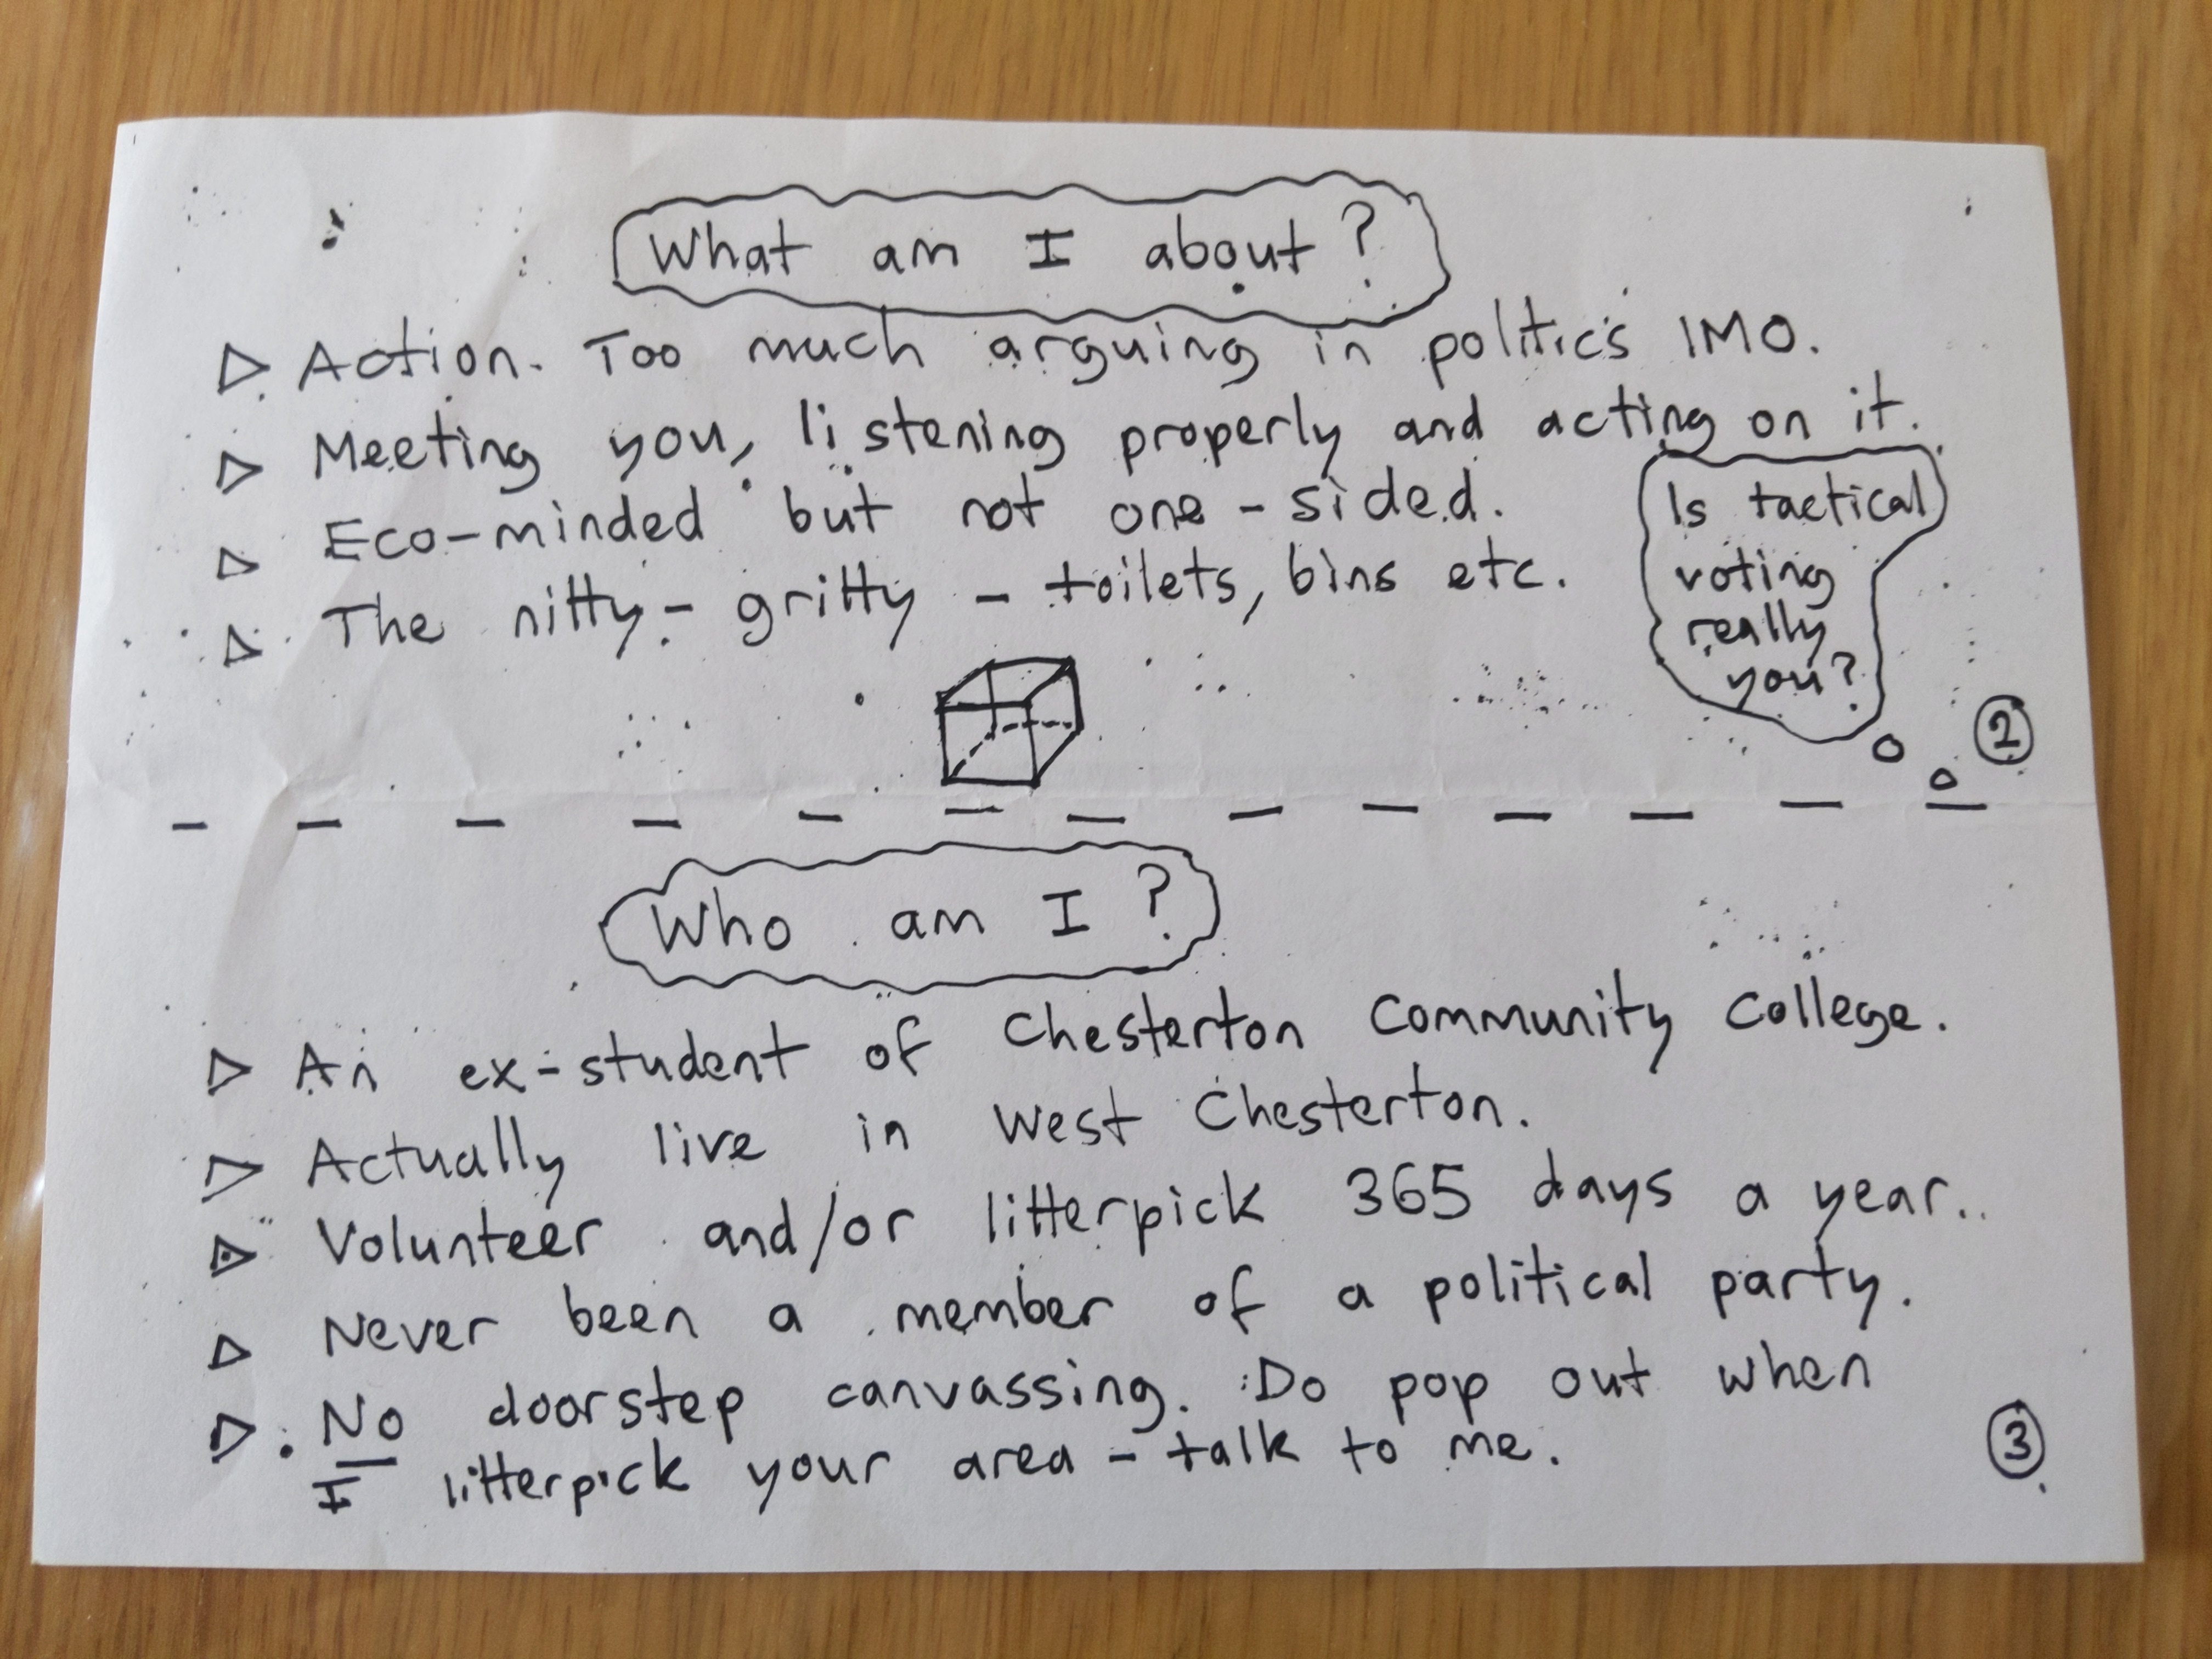 What am I about?
Action. Too much arguing in politics IMO.
Meeting you, listening properly and acting on it.
Eco-minded but not one-sided.
The nitty-gritty - toilets, bins etc.
Is tactical
voting
really
you?
2
Who am I?
An ex-student of Chesterton Community College.
Actually live in West Chesterton.
Volunteer and/or litterpick 365 days a year.
Never been a member of a political party.
No doorstep canvassing. Do pop out when
I litterpick your area - talk to me.
3